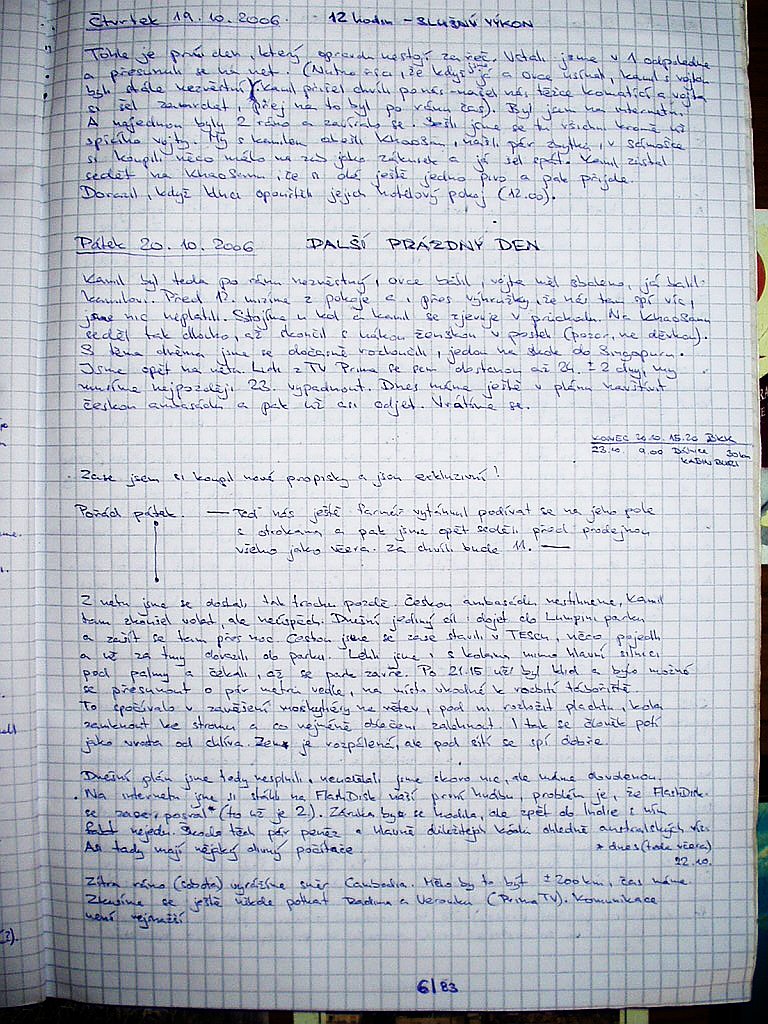 Čtvrtek 19.10.2006. 12 hodin - SLUŽNÝ VÝKON
Tohle je první den, který opravdu nestojí za řeč. Vstali jsme v 1 odpoledne
a přesunuli se na net. (Nutno říci, že když jsme já a ovce usínal, kamil s vojtou
byli stále nezvěstní. Kamil přišel chvíli po nás - našel nás, těžce komatící a vojta
si šel zamrdat, prej na to byl po ránu čas). Byl jsem na internetu.
A najednou byly 2 ráno a zavíralo se. Sešli jsme se tu všichni kromě už
spícího vojty. My s kamilem oběšli KhaoSan, našli pár zbytků, v
si koupili něco málo na zub jako zákusek a já šel spát. Kamil zůstal
sedět na KhaoSanu, že si dá ještě jedno pivo a pak přijde.
Dorazil, když kluci opouštěli jejich hotelový pokoj (12.00).
Pátek 20.10.2006 DALŠÍ PRÁZDNÝ DEN
Kamil byl teda po ránu nezvěstný, ovce běžel, vojta měl sbaleno, já balil
kamilovi. Před 12. mizíme z pokoje a, přes výhružky, že nás tam spí víc,
jsme nic neplatili. Stojíme u kol a kamil se zjevuje v průchodu. Na KhaoSanu
seděl tak dlouho, až skončil s nákou ženskou v posteli (pozor, ne děvkou).
S těma dvěma jsme se dočasně rozloučili, jedou na skok do Singapuru.
Jsme opět na netu. Lidi z TV Prima se sem dostanou až 24. ± 2 dny, my
musíme nejpozději 23. vypadnout. Dnes máme ještě v plánu navštívit
českou ambasádu a pak už asi odjet. Vrátíme se.
KONEC 20.10. 15.20 BKK
23.10. 9.00 Dálnice 30km
KABIN BURI
Zase jsem si koupil nové propisky a jsou exkluzivní!
Pořád pátek. — Teď nás ještě farmář vytáhnul podívat se na jeho pole
s otrokama a pak jsme opět seděli před prodejnou
všeho jako včera. Za chvíli bude 11. —
Z netu jsme se dostali tak trochu pozdě. Českou ambasádu nestihneme, kamil
tam zkoušel volat, ale neúspěch. Dnešní jediný cíl: dojet do Lumpini parku
a zašít se tam přes noc. Cestou jsme se zase stavili v TESCU, něco pojedli
a už za tmy dorazili do parku. Lehli jsme i s kolama mimo hlavní silnici
pod palmy a čekali, až se park zavře. Po 21.15 už byl klid a bylo možné
se přesunout o pár metrů vedle, na místo vhodné k rozbití tábořiště.
To spočívalo v zavěšení moskytiéry na větev, pod ni rozložit plachtu, kola
zamknout ke stromu a co nejméně oblečení zalehnout. I tak se člověk potí
jako vrata od chlíva. Zem je rozpálená, ale pod sítí se spí dobře.
Dnešní plán jsme tedy nesplnili, neudělali jsme skoro nic, ale máme dovolenou.
Na internetu jsme si stáhli na FlashDisk naší první hudbu, problém je, že FlashDisk
se zase posral* (to už je 2.). Záruka by se hodila, ale zpět do Indie s ním
nejedu. Škoda těch pár peněz a hlavně důležitejch kódů ohledně australských víz.
Asi tady mají nějaký divný počítače * dnes (tode včera)
22.10.
Zítra ráno (sobota) vyrážíme směr Cambodia. Mělo by to být ± 200 km, čas máme.
Zkusíme se ještě někde potkat Radima a Veroniku (Prima TV). Komunikace
není nejsnazší
6/83